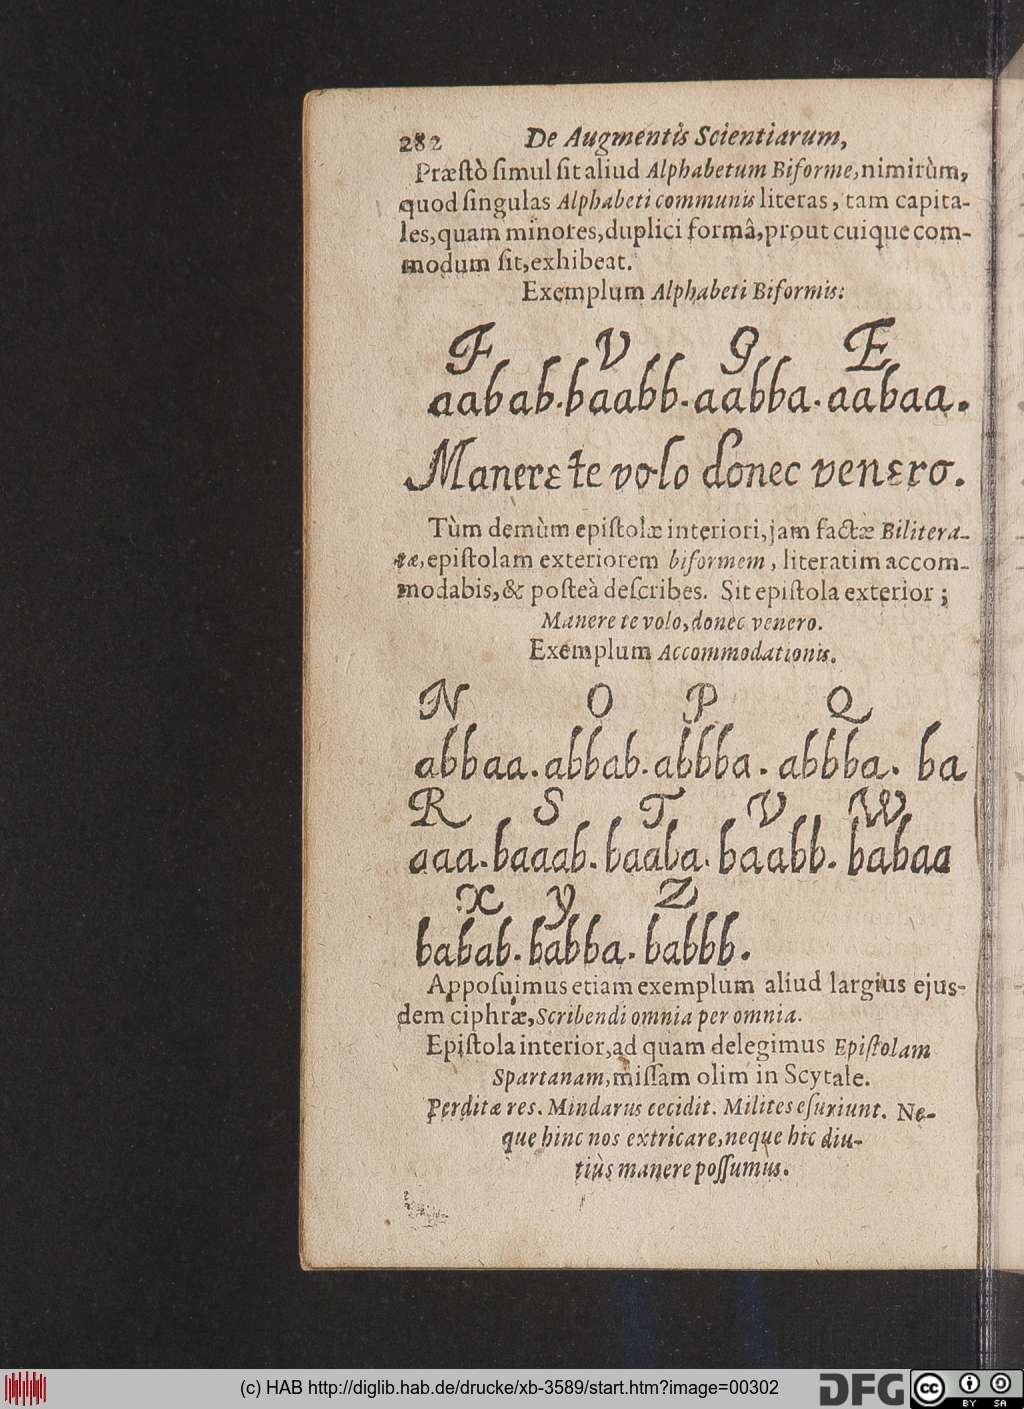 282 De Augmentis Scientiarum,
Præstò simul sit aliud Alphabetum Biforme, nimirùm,
quod singulas Alphabeti communis literas, tam capita-
les, quam minores, duplici formâ, prout cuique com-
modum sit, exhibeat.
Exemplum Alphabeti Biformis:
F V g E
aabab. baabb. aabba. aabaa.
Manere te volo donec venero.
Tùm demùm epistolæ interiori, jam factæ Bilitera-
tæ, epistolam exteriorem biformem, literatim accom-
modabis, & posteà describes. Sit epistola exterior;
Manere te volo, donec venero.
Exemplum Accommodationis.
N O P Q
abbaa. abbab. abbba. abbba. ba
R S T V W
aaa. baaab. baaba. baabb. babaa
X y Z
babab. babba. babbb.
Apposuimus etiam exemplum aliud largius ejus-
dem ciphræ, Scribendi omnia per omnia.
Epistola interior, ad quam delegimus Epistolam
Spartanam, missam olim in Scytale.
Perditæ res. Mindarus cecidit. Milites esuriunt. Ne-
que hinc nos extricare, neque hic diu-
tiùs manere possumus.
(c) HAB http://diglib.hab.de/drucke/xb-3589/start.htm?image=00302
DFG
cc BY SA